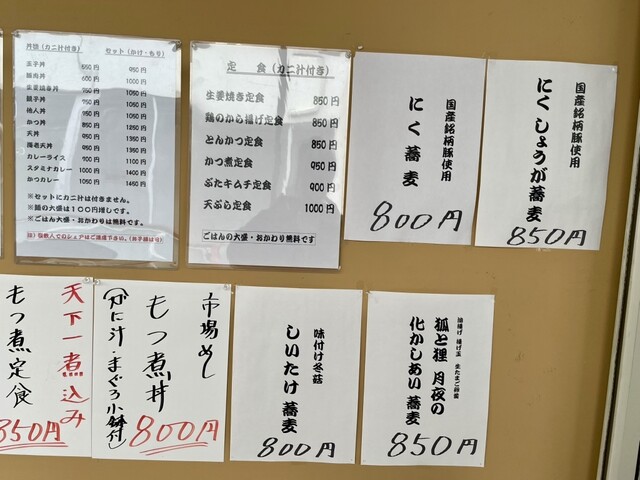 丼物（カニ汁付き） セット（かけ・もり）
玉子丼 550円 950円
豚肉丼 600円 1000円
生姜焼き丼
親子丼
他人丼
かつ丼 850円 1250円
天丼
海老天丼
カレーライス
スタミナカレー 1000円 1400円
かつカレー 1050円 1450円
※セットにカニ汁は付きません。
※麺の大盛は１００円増しです。
※ごはん大盛・おかわり無料です。
定　食（カニ汁付き）
生姜焼き定食 850円
鶏のから揚げ定食 850円
とんかつ定食 850円
かつ煮定食 950円
ぶたキムチ定食 900円
天ぷら定食 1000円
ごはんの大盛・おかわり無料です
国産銘柄豚使用
にく蕎麦
800円
国産銘柄豚使用
にくしょうが蕎麦
850円
天下一煮込み
もつ煮定食
850円
市場めし
もつ煮丼
（かに汁・まぐろ小鉢付）
800円
味付け冬菇
しいたけ蕎麦
800円
狐と狸 月夜の
化かしあい蕎麦
850円